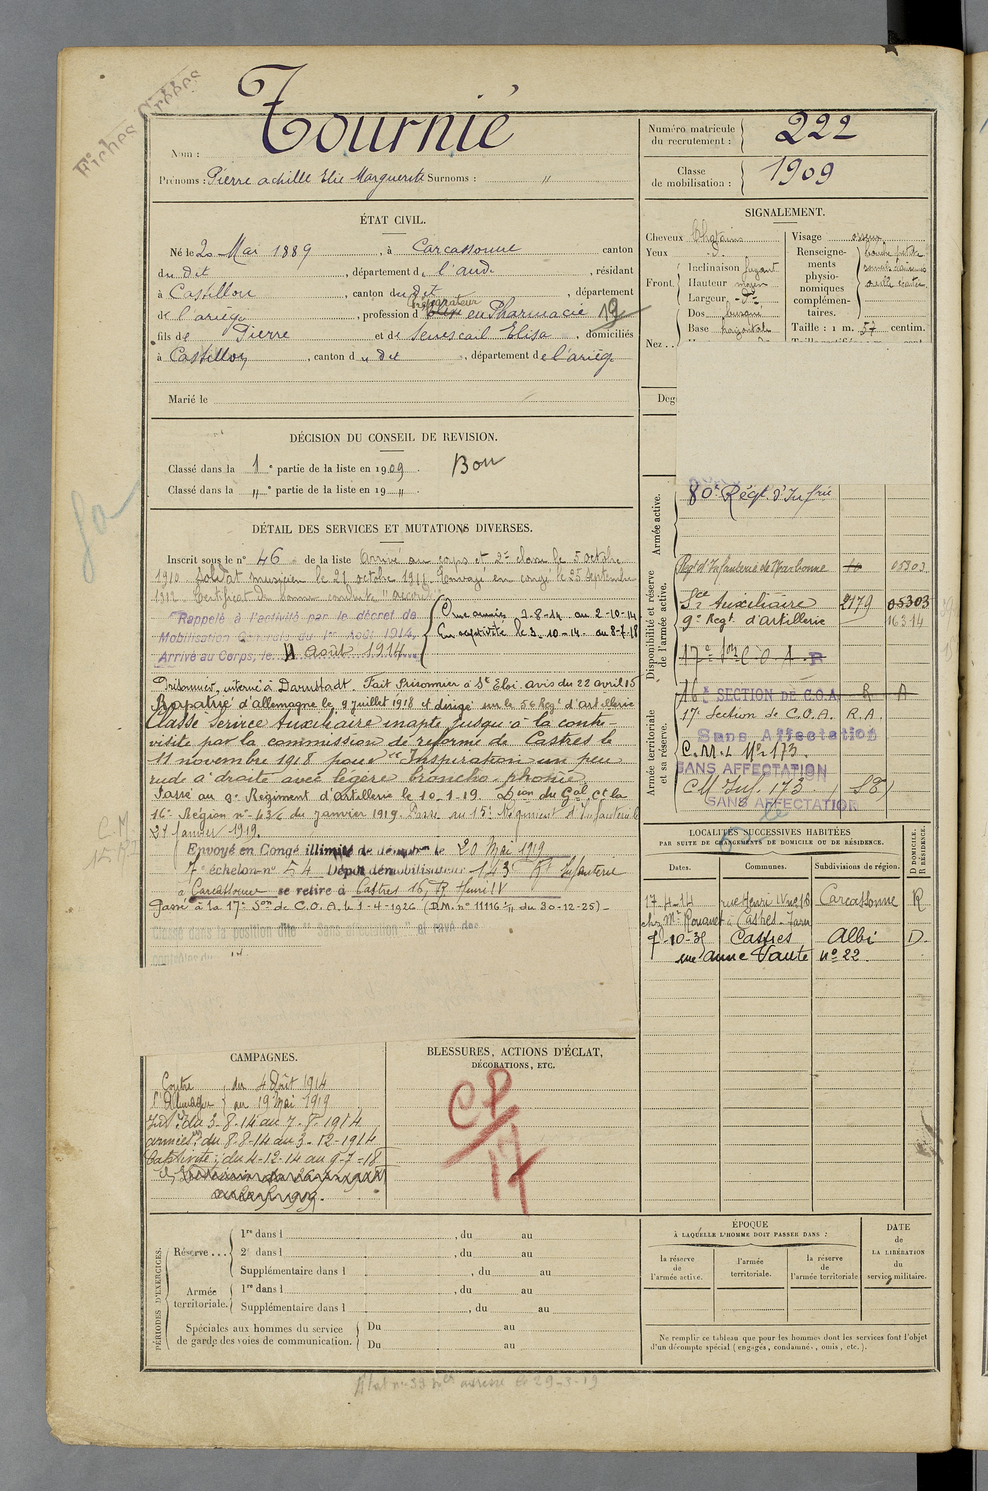 Fiches Créées
Tournié
Nom :
Prénoms : Pierre Achille Elie Marguerite Surnoms : "
Numéro matricule du recrutement : 222
Classe de mobilisation : 1909
ÉTAT CIVIL.
Né le 20 Mai 1889, à Carcassonne canton
du dit, département de l'aude, résidant
à Castillon, canton du dit, département
de l'ariège, profession d préparateur en Pharmacie
fils de Pierre et de Senescail Elisa, domiciliés
à Castillon, canton du dit, département de l'ariège
Marié le
SIGNALEMENT.
Cheveux Chatains
Yeux d°
Front. Inclinaison fuyant
Hauteur moyen
Largeur d°
Nez .. Dos busqué
Base horizontale
Visage osseux
Renseignements physionomiques complémentaires. bouche petite
Taille : 1 m. 57 centim.
DÉCISION DU CONSEIL DE REVISION.
Classé dans la 1e partie de la liste en 1909. Bon
Classé dans la " e partie de la liste en 19 " .
DÉTAIL DES SERVICES ET MUTATIONS DIVERSES.
Inscrit sous le n° 46 de la liste Arrivé au corps et 2e classe le 5 octobre
1910 Soldat musicien le 21 octobre 1911. Envoyé en congé le 25 Septembre
1912 Certificat de bonne conduite "accordé"
Rappelé à l'activité par le décret de
Mobilisation Générale du 1er Août 1914,
Arrivé au Corps, le 4 août 1914
Aux armées 7-8-14 au 2-10-14
En captivité le 3-10-14 au 8-7-18
Prisonnier, interné à Darmstadt. Fait Prisonnier à St Eloi avis du 22 avril 15
Rapatrié d'allemagne le 9 juillet 1918 et dirigé sur le 56 Régt d'artillerie
Classé Service Auxiliaire inapte jusqu'à la contre-
visite par la commission de réforme de Castres le
11 novembre 1918 pour "Inspiration un peu
rude à droite avec légère broncho-phonie
Passé au 9e Régiment d'Artillerie le 10-1-19. Don du Gal Ct la
16e Région n° 43/6 du janvier 1919. Passé au 15e Régiment d'Infanterie le
27 janvier 1919.
Envoyé en Congé illimité de démobon le 20 Mai 1919
7e échelon n° 54 Dépôt démobilisateur 143e Rt Infanterie
à Carcassonne se retire à Castres 16, R Henri IV
Passé à la 17e Son de C.O.A. le 1-4-1926 (D.M. n° 11116 1/11 du 30-12-25)
Classé dans la position dite "Sans affectation" et rayé des
Armée active.
80e Régt d'Infrie
Disponibilité et réserve de l'armée active.
Regt d'Infanterie de Narbonne 05303
Sce Auxiliaire 2179 05303
9e Regt d'artillerie 16314
17e Son C.O.A. R
Armée territoriale et sa réserve.
16e SECTION DE C.O.A. R A
17e Section de C.O.A. R.A.
Sans Affectation
C.M.I. No 173.
SANS AFFECTATION
CM Inf. 173 (SB)
SANS AFFECTATION
LOCALITÉS SUCCESSIVES HABITÉES
PAR SUITE DE CHANGEMENTS DE DOMICILE OU DE RÉSIDENCE.
D DOMICILE. R RÉSIDENCE.
Dates. Communes. Subdivisions de région.
17-4-14 rue Henri IV n° 16 Carcassonne R
chez Mr Rouanet à Castres-Tarn
7-10-35 Castres Albi D.
rue anne Vaute n° 22.
CAMPAGNES.
Contre l'Allemagne du 4 Août 1914
au 19 Mai 1919
Intr: du 3-8-14 au 7-8-1914
armées: du 8-8-14 au 3-12-1914
Captivité: du 4-12-14 au 9-7-18
BLESSURES, ACTIONS D'ÉCLAT,
DÉCORATIONS, ETC.
CP
17
PÉRIODES D'EXERCICES.
Réserve ... 1re dans l , du au
2e dans l , du au
Supplémentaire dans l , du au
Armée territoriale. 1re dans l , du au
Supplémentaire dans l , du au
Spéciales aux hommes du service de garde des voies de communication. Du au
Du au
ÉPOQUE
À LAQUELLE L'HOMME DOIT PASSER DANS :
la réserve de l'armée active.
l'armée territoriale.
la réserve de l'armée territoriale
DATE DE LA LIBÉRATION du service militaire.
Ne remplir ce tableau que pour les hommes dont les services font l'objet
d'un décompte spécial (engagés, condamnés, omis, etc.).